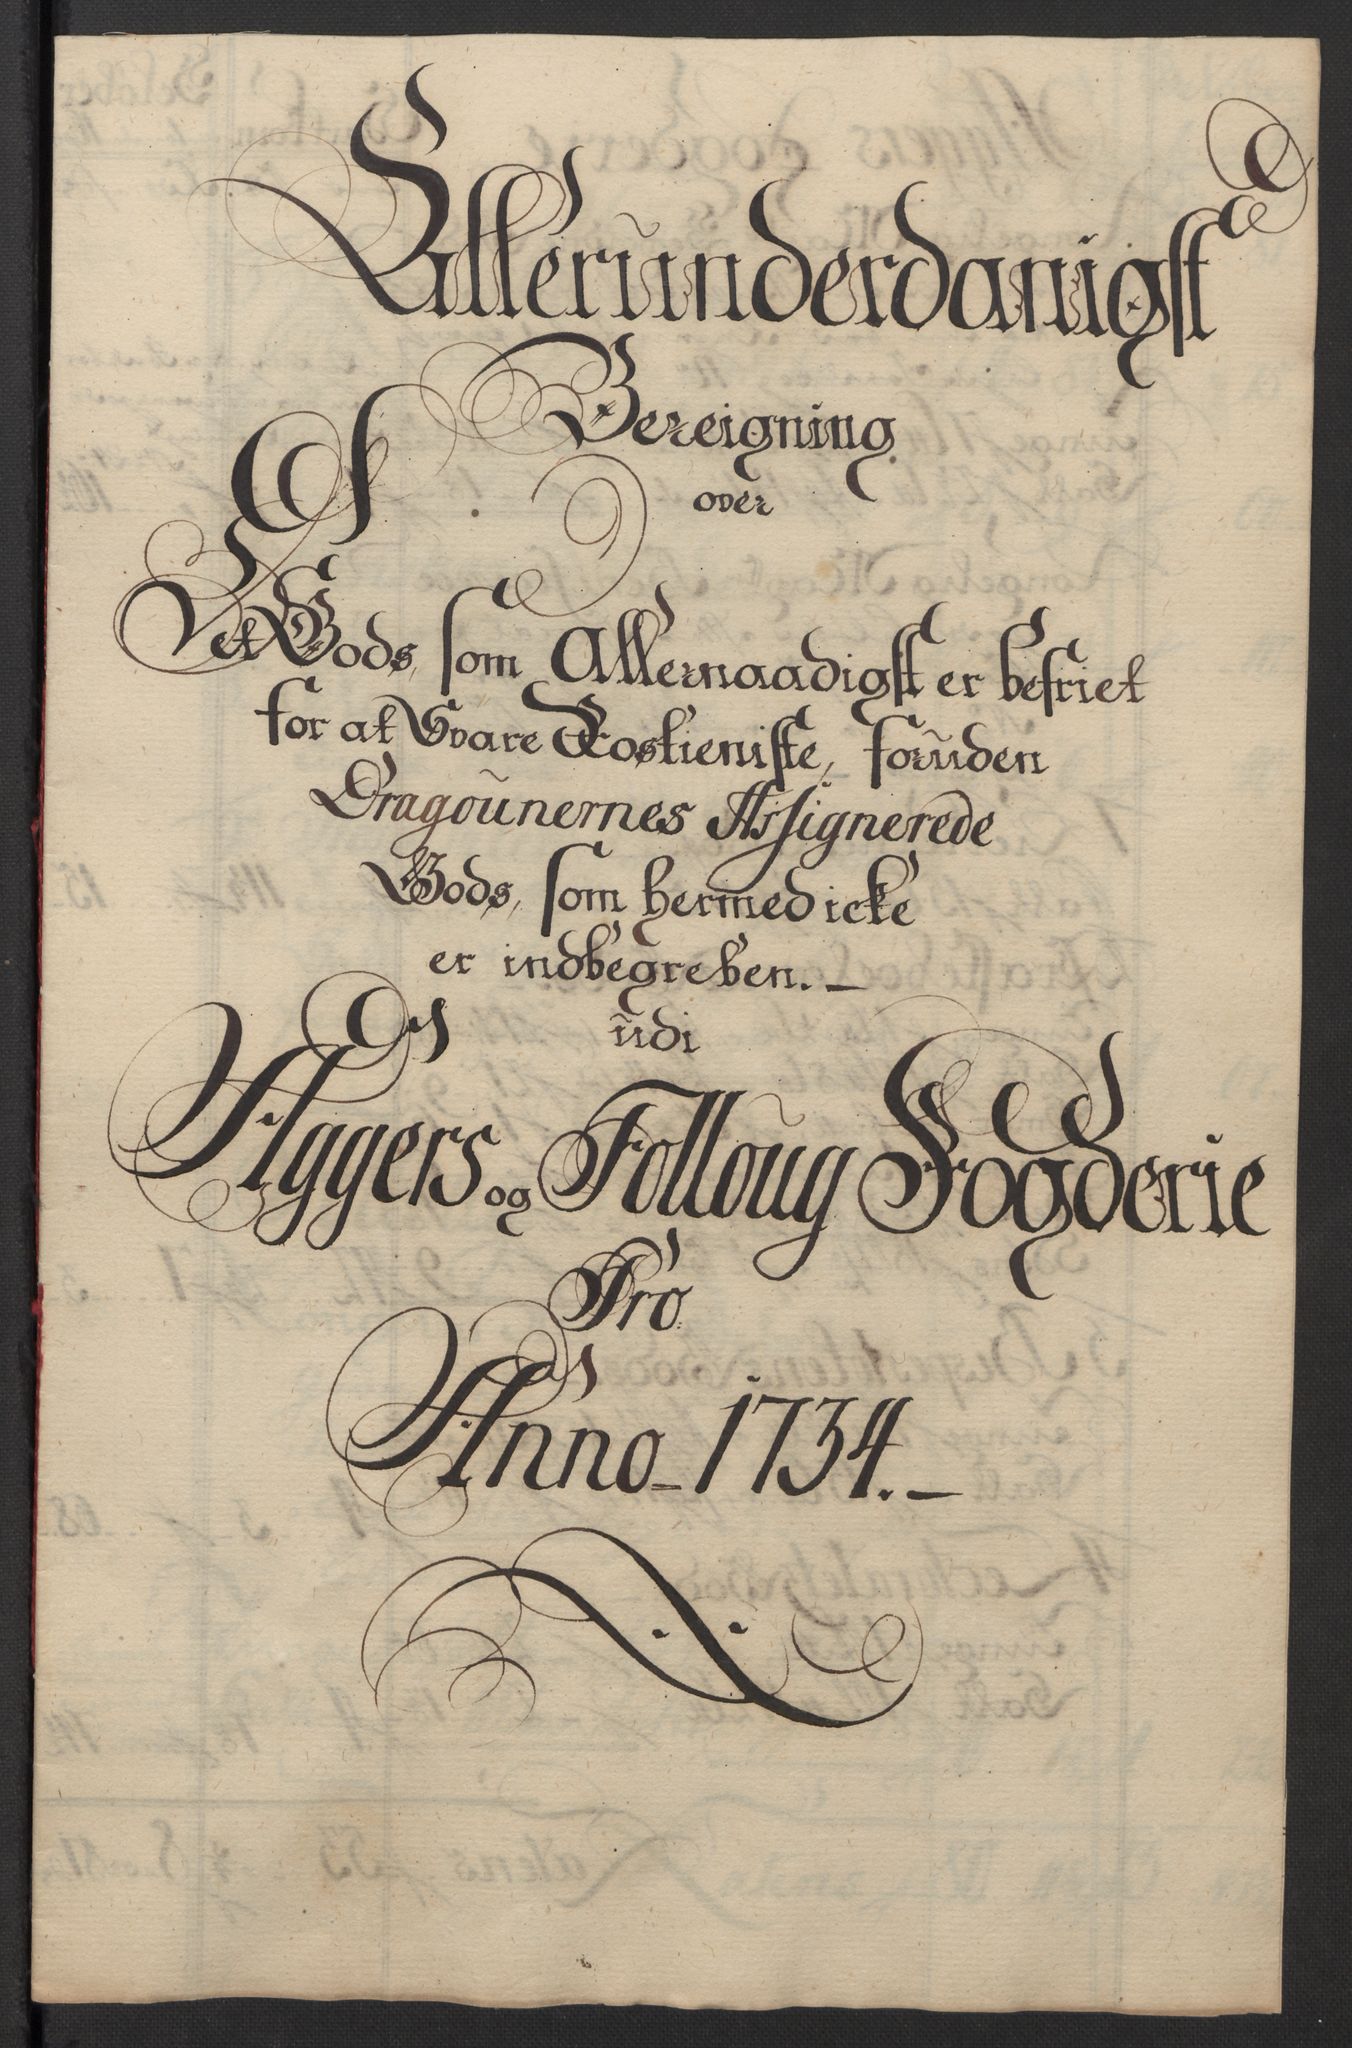 Alleründerdanigst
Bereigning
over
Det Gods, som Allernaadigst er befriet
for at Svare Rostieniste, forüden
Dragoünernes Assignerede
Gods, som hermed icke
er indbegreben. _
üdi
Aggers og Folloüg Fogderie
Pro
Anno _ 1734. _